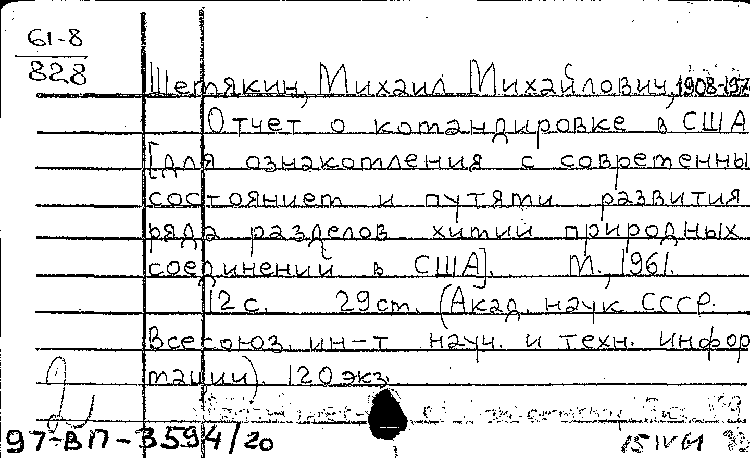 61-8
828
Шемякин, Михаил Михайлович, 1908-197
Отчет о командировке в США
[для ознакомления с современны
состоянием и путями развития
ряда разделов химии природных
соединений в США]. М., 1961.
12 с. 29 cm. (Акад. наук СССР.
Всесоюз. ин-т науч. и техн. инфор
мации). 120 экз.
97-ВП-3594/20
15 IV 61